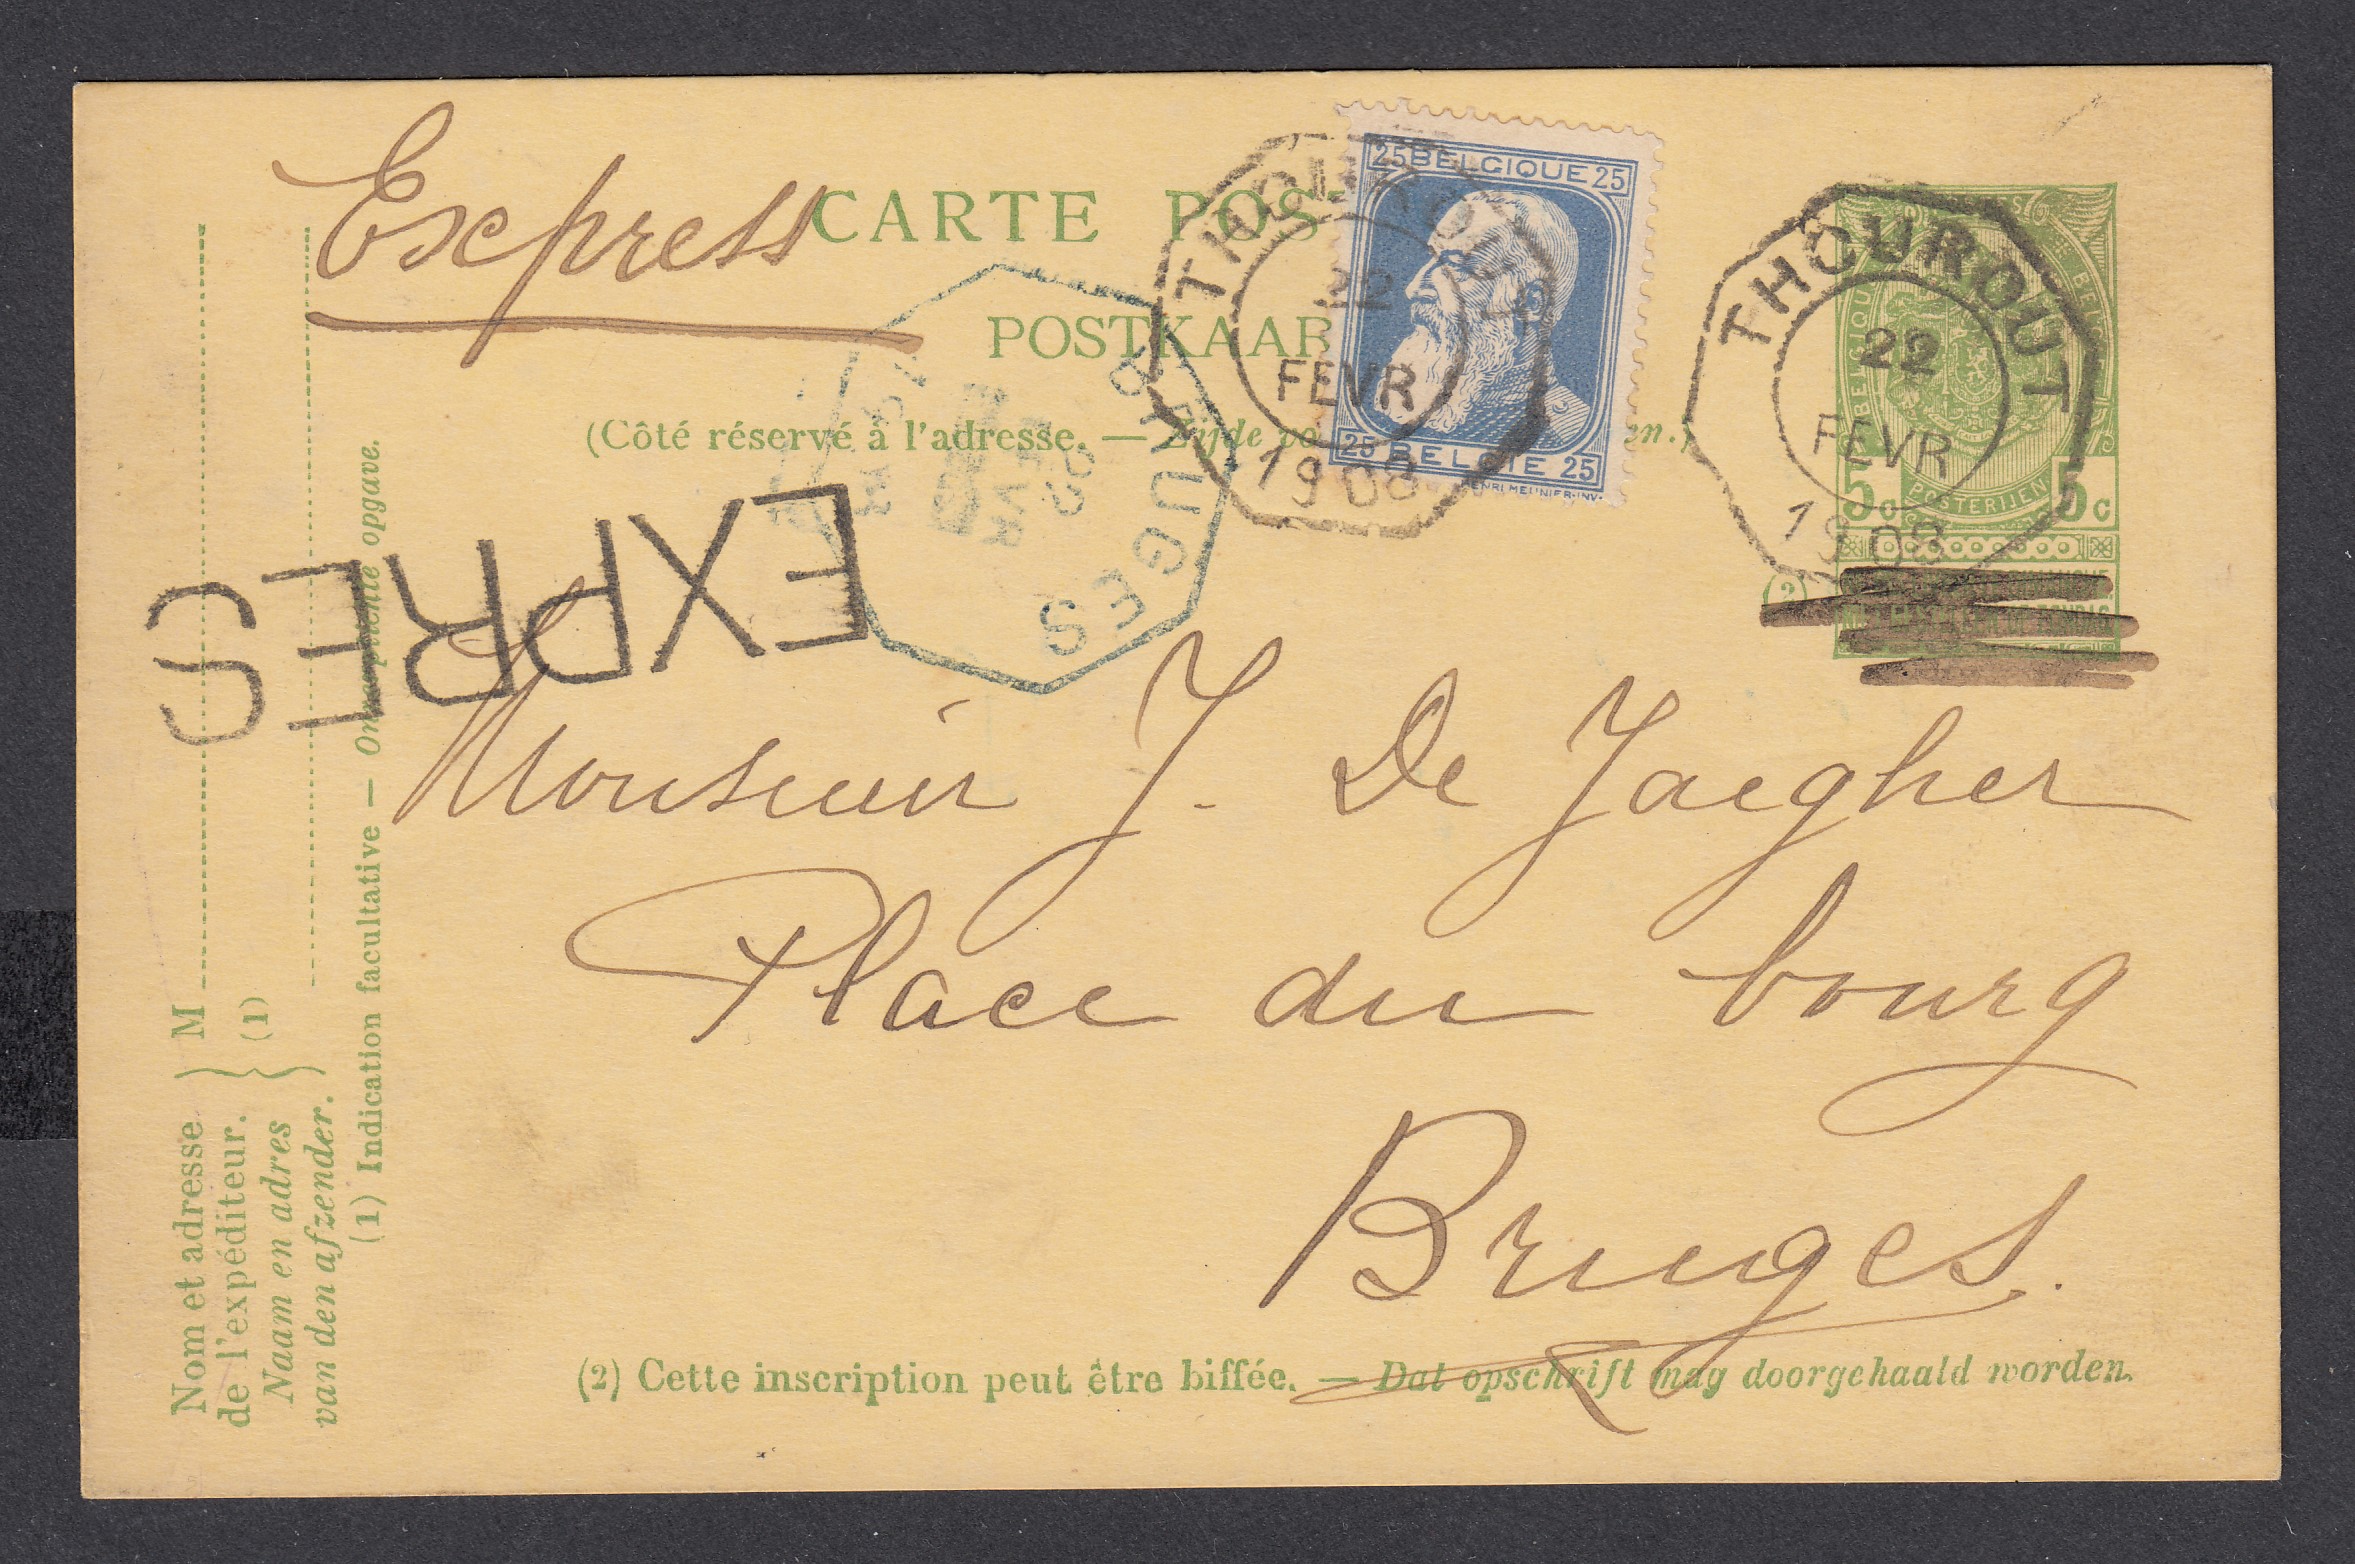 Express
CARTE POS
POSTKAAR
(Côté réservé à l'adresse. — Zijde vo en.)
25 BELGIQUE 25
25 BELGIE 25
HENRI MEUNIER·INV·
THOUROUT
22
FEVR
1908
THOUROUT
22
FEVR
1908
5c POSTERIJEN 5c
BRUGES
FEVR
EXPRES
(2)
Monsieur J. De Jaegher
Place du bourg
Bruges.
(2) Cette inscription peut être biffée. — Dat opschrift mag doorgehaald worden.
Nom et adresse
de l'expéditeur.
Naam en adres
van den afzender.
M
(1)
(1) Indication facultative — Onverplichte opgave.